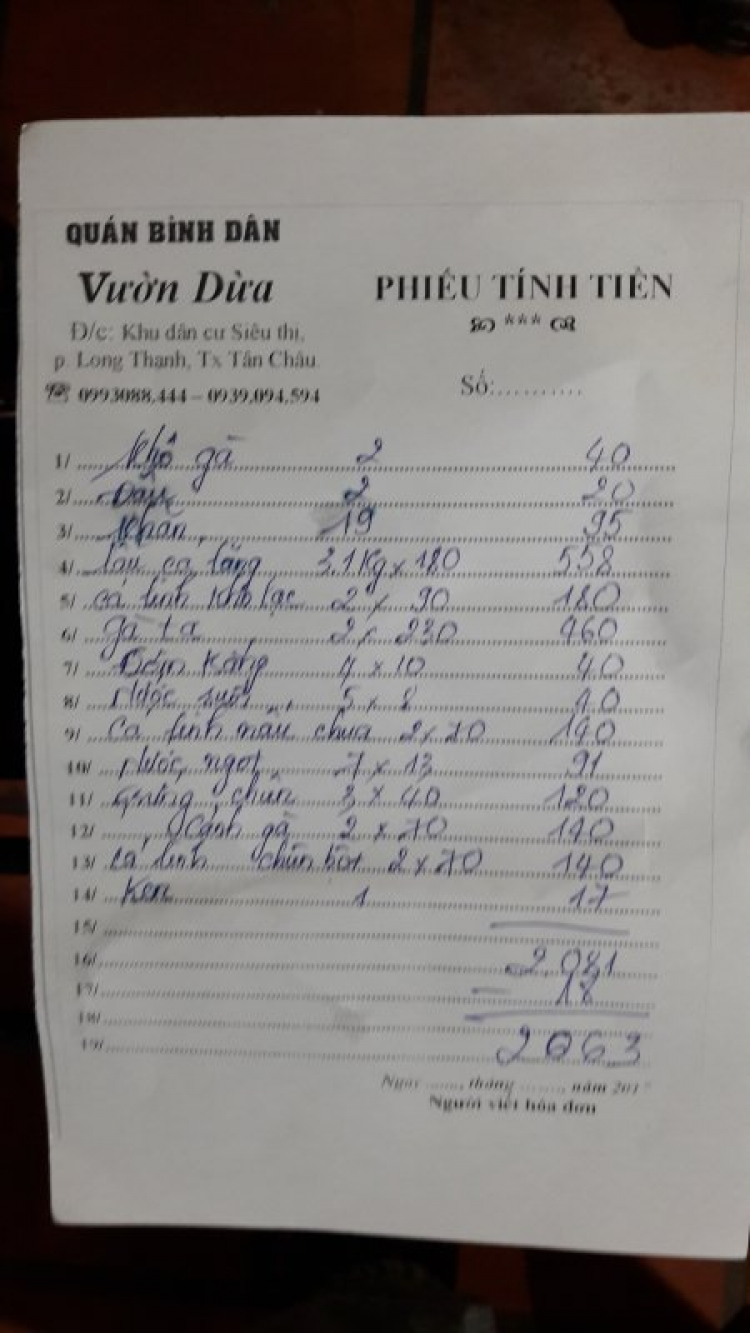 QUÁN BÌNH DÂN
Vườn Dừa
PHIẾU TÍNH TIỀN
***
Đ/c: Khu dân cư Siêu thị,
p. Long Thạnh, Tx Tân Châu.
☎ 0993088.444 – 0939.094.594
Số:..........
1/ Khô gà 2 40
2/ Đậu 2 20
3/ Khăn 19 95
4/ lẩu cá lăng 3.1 Kg x 180 558
5/ cá linh kho lạc 2 x 90 180
6/ gà ta 2 x 230 460
7/ 4 x 10 40
8/ Nước suối 5 x 8 40
9/ cá linh nấu chua 2 x 70 140
10/ Nước ngọt 7 x 13 91
11/ chún 3 x 40 120
12/ cánh gà 2 x 70 140
13/ cá linh chiên bột 2 x 70 140
14/ Ken 1 17
15/
16/ 2.081
17/ – 18
18/
19/ 2063
Ngày ......, tháng ......., năm 201
Người viết hóa đơn